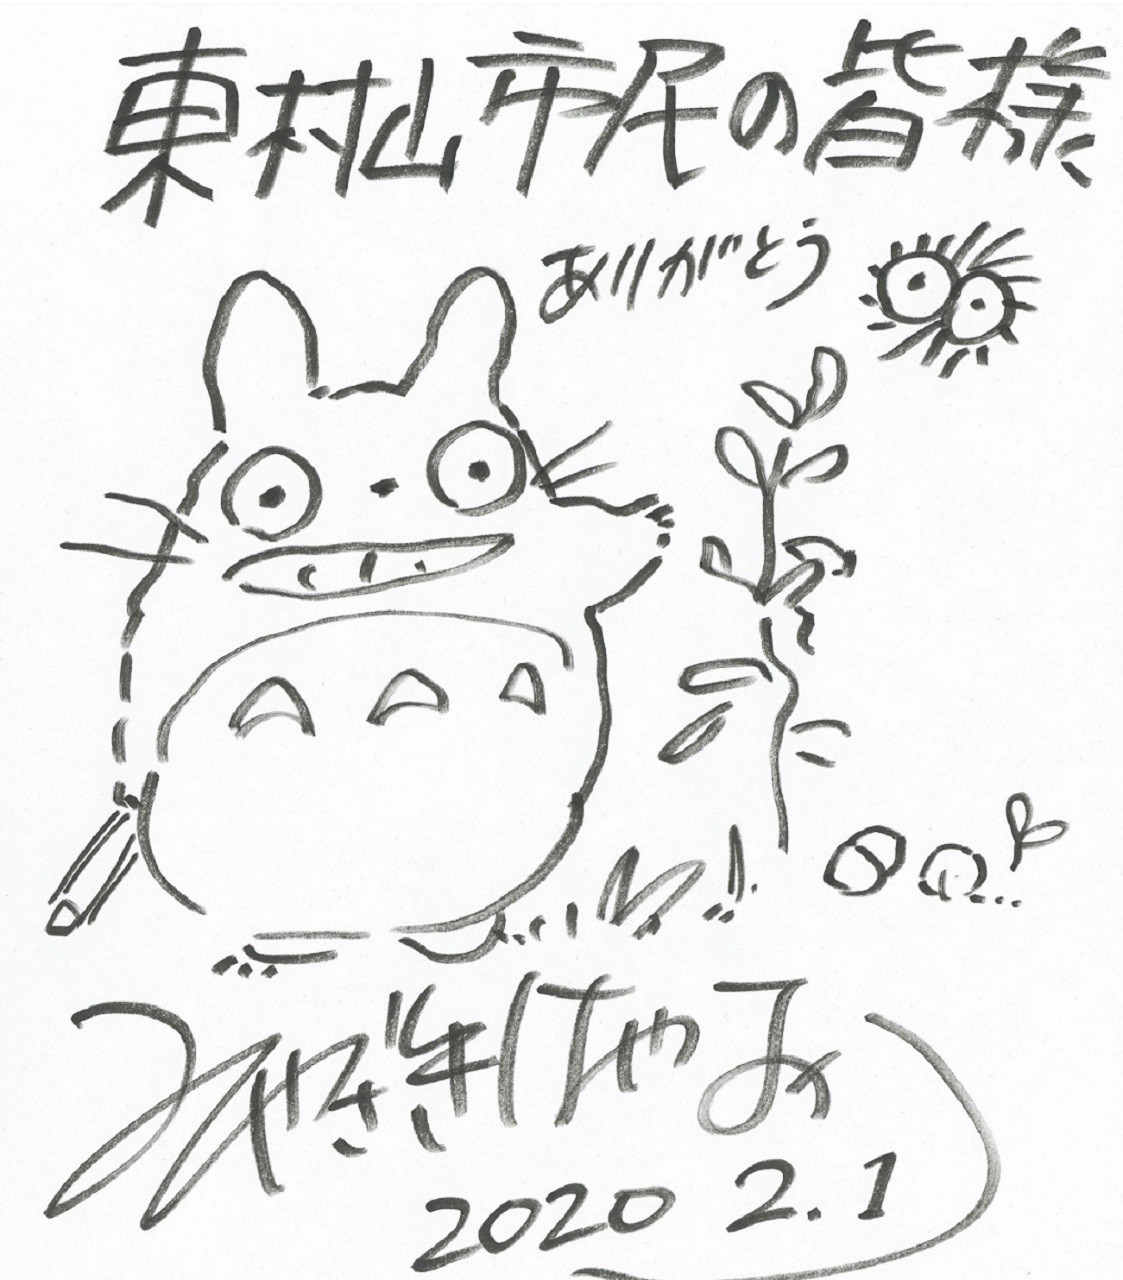 東村山市民の皆様
ありがとう
みやざきはやお
2020 2.1